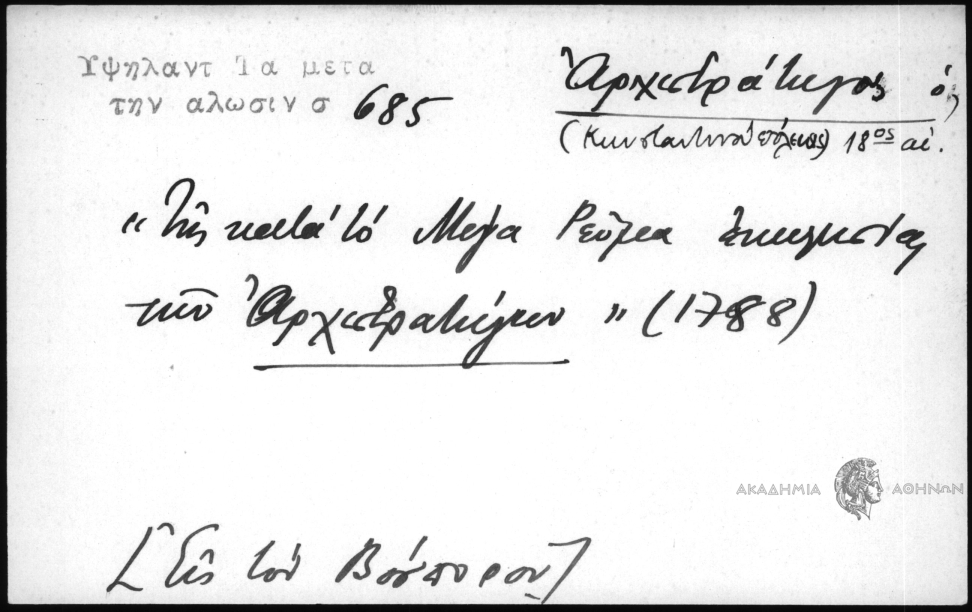 Υψηλαντ Τα μετα
την αλωσιν σ 685
Ἀρχιστράτηγος ὁ,
(Κωνσταντινουπόλεως) 18ος αἰ.
"Τῆς κατὰ τὸ Μέγα Ῥεῦμα ἐκκλησίας
τῶν Ἀρχιστρατήγων" (1788)
ΑΚΑΔΗΜΙΑ ΑΘΗΝΩΝ
[Εἰς τὸν Βόσπορον]